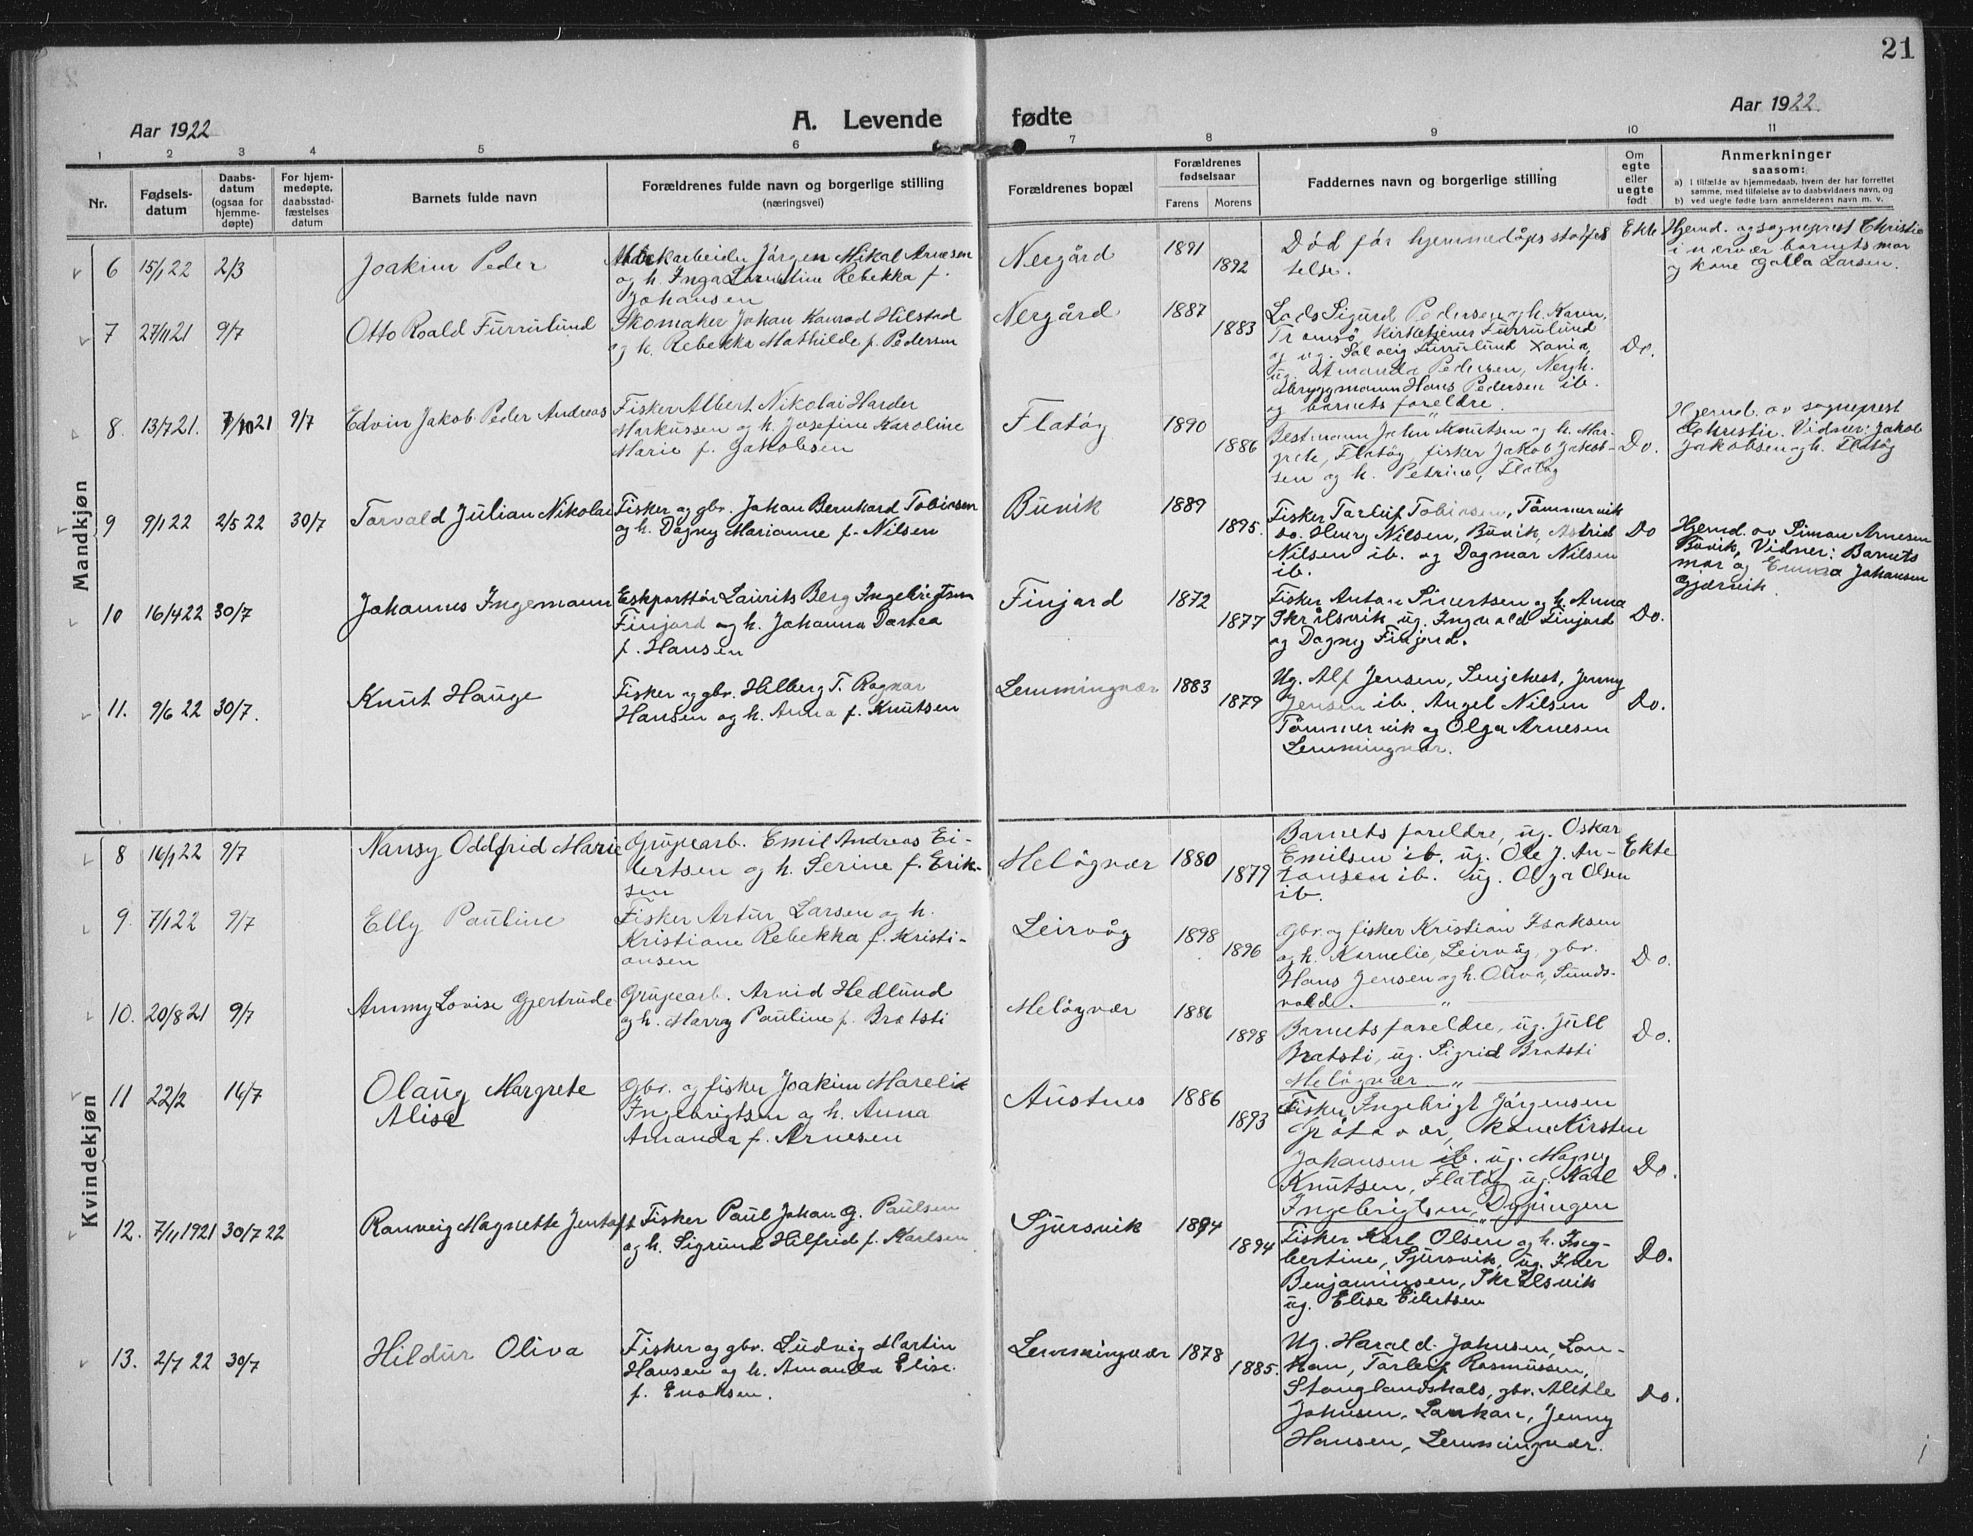 21
Aar 1922
A. Levende fødte
Aar 1922
1 2 3 4 5 6 7 8 9 10 11
Nr.
Fødsels-
datum
Daabs-
datum
(ogsaa for
hjemme-
døpte)
For hjem-
medøpte,
daabsstad-
fæstelses
datum
Barnets fulde navn
Forældrenes fulde navn og borgerlige stilling
(næringsvei)
Forældrenes bopæl
Forældrenes
fødselsaar
Farens Morens
Faddernes navn og borgerlige stilling
Om
egte
eller
uegte
født
Anmerkninger
saasom:
a) i tilfælde av hjemmedaab, hvem der har forrettet
samme, med tilføielse av to daabsvidners navn, og
b) ved uegte fødte barn anmelderens navn m. v.
Mandkjøn
6 15/1 22 2/3
Joakim Peder
arbeider Jörgen Mikal Arnesen
og h. Inga Rebekka f.
Johansen
Nergård
1891
1892
Död för hjemmedåps stadfes
telse.
Ekte
Hjemd. av sogneprest Christie
i nærvær barnets mor
og kone Galla Larsen.
7 27/11 21 9/7
Otto Roald Furrulund
Skomaker Johan Konrad Hilstad
og h. Rebekka Mathilde f. Pedersen
Nergård
1887
1883
Lods Sigurd Pedersen og h. Karen,
Tromsö, Kirketjener Furrulund
og ug. Solveig Furrulund Xania,
ug. Amanda Pedersen, Nergh.
Hans Pedersen ib.
og barnets foreldre.
Do.
8. 13/7 21. 7/10 21 9/7
Edvin Jakob Peder Andreas
Fisker Albert Nikolai Harder
Markussen og h. Josefine Karoline
Marie f. Jakobsen
Flatöy
1890
1886
Bestmann John Knutsen og h. Mar-
grete, Flatöy, fisker Jakob Jakob-
sen og h. Petrine, Flatöy
Do.
Hjemd. av sogneprest
Christie. Vidner: Jakob
Jakobsen og h. Flatöy
9 9/1 22 2/5 22 30/7
Torvald Julian Nikolai
Fisker og gbr. Johan Bernhard Tobiasen
og h. Dagny Marianne f. Nilsen
Buvik
1889
1895.
Fisker Tarleif Tobiasen, Tömmervik
do. Henry Nilsen, Buvik, Astrid
Nilsen ib. og Dagmar Nilsen
ib.
Do
Hjemd. av Simon Arnesen
Buvik, Vidner: Barnets
mor og Emma Johansen
Gjærvik.
10 16/4 22 30/7
Johannes Ingemann
Eksportför Laurits Berg Ingebrigtsen
Finjord og h. Johanna Dortea
f. Hansen
Finjord
1872
1877
Fisker Anton Sivertsen og h. Anna
Skrålsvik, ug. Ingvald Finjord
og Dagny Finjord.
Do.
11. 9/6 22 30/7.
Knut Hauge
Fisker og gbr. Hilberg T. Ragnar
Hansen og h. Anna f. Knutsen
Lemmingvær
1883
1879
Ug. Alf Jensen, Senjehest, Jenny
Jensen ib. Angel Nilsen
Tömmervik og Olga Arnesen
Lemmingvær.
Do.
Kvindekjøn
8 16/1 22 9/7
Nansy Oddfrid Marie
Grupearb. Emil Andreas Ei-
lertsen og h. Serine f. Erik-
sen
Melögvær
1880
1879
Barnets foreldre, ug. Oskar
Emilsen ib. ug. Ole J. An-
tonsen ib. ug. Olga Olsen
ib.
Ekte
9. 7/1 22 9/7
Elly Pauline
Fisker Artur Larsen og h.
Kristiane Rebekka f. Kristi-
ansen
Leirvåg
1898
1896
Gbr. og fisker Kristian Isaksen
og h. Kornelie, Leirvåg, gbr.
Hans Jensen og h. Oliva, Sunds-
volde.
Do.
10. 20/8 21 9/7
Ammy Lovise Gjertrude
Grupearb. Arvid Hedlund
og h. Marry Pauline f. Bratsti
Melögvær
1886
1898
Barnets foreldre, ug. Jull
Bratsti, ug. Sigrid Bratsti
Melögvær
Do.
11 22/2 16/7
Olaug Margrete
Alise
Gbr. og fisker Joakim Mareli
Ingebrigtsen og h. Anna
Amanda f. Arnesen
Austnes
1886
1893
Fisker Ingebrigt Jörgensen
Gråtavær, kone Kirsten
Johansen ib. ug. Magny
Knutsen, Flatöy, ug. Karl
Ingebrigtsen, Dyjingen
Do.
12. 7/11 1921 30/7 22
Ranveig Magnette Jentoft
Fisker Paul Johan G. Paulsen
og h. Sigrund Hilfrid f. Karlsen
Sjursvik
1894
1894
Fisker Karl Olsen og h. Ing-
bertine, Sjursvik, ug. Iver
Benjaminsen, Skrålsvik
ug. Elise Eilertsen
Do.
13. 2/7 22 30/7
Hildur Oliva
Fisker og gbr. Ludvig Martin
Hansen og h. Amanda Elise
f. Enoksen.
Lemmingvær
1878
1885.
Ug. Harald Johnsen, Lan-
kan, Tarleif Rasmussen,
Stonglandshals, gbr.
Johnsen, Lankan, Jenny
Hansen, Lemmingvær.
Do.